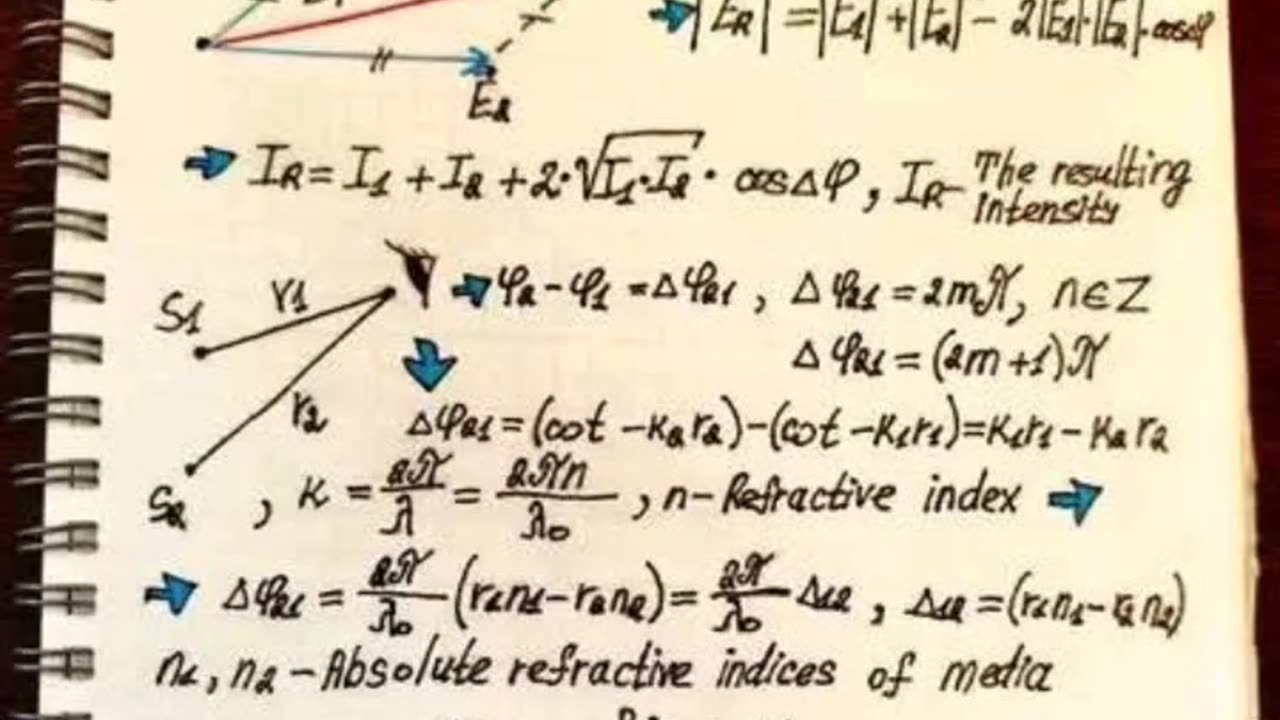 |ER| = |E1| + |E2| - 2|E1|·|E2|·cosφ
E2
IR = I1 + I2 + 2·√I1·I2 · cosΔφ, IR - The resulting
intensity
S1 r1 φ2 - φ1 = Δφ21, Δφ21 = 2mπ, n∈Z
Δφ21 = (2m+1)π
r2 Δφ21 = (ωt - K2r2) - (ωt - K1r1) = K1r1 - K2r2
S2, K = 2π/λ = 2πn/λ0, n - Refractive index
Δφ21 = 2π/λ0 (r1n1 - r2n2) = 2π/λ0 Δ12, Δ12 = (r1n1 - r2n2)
n1, n2 - Absolute refractive indices of media